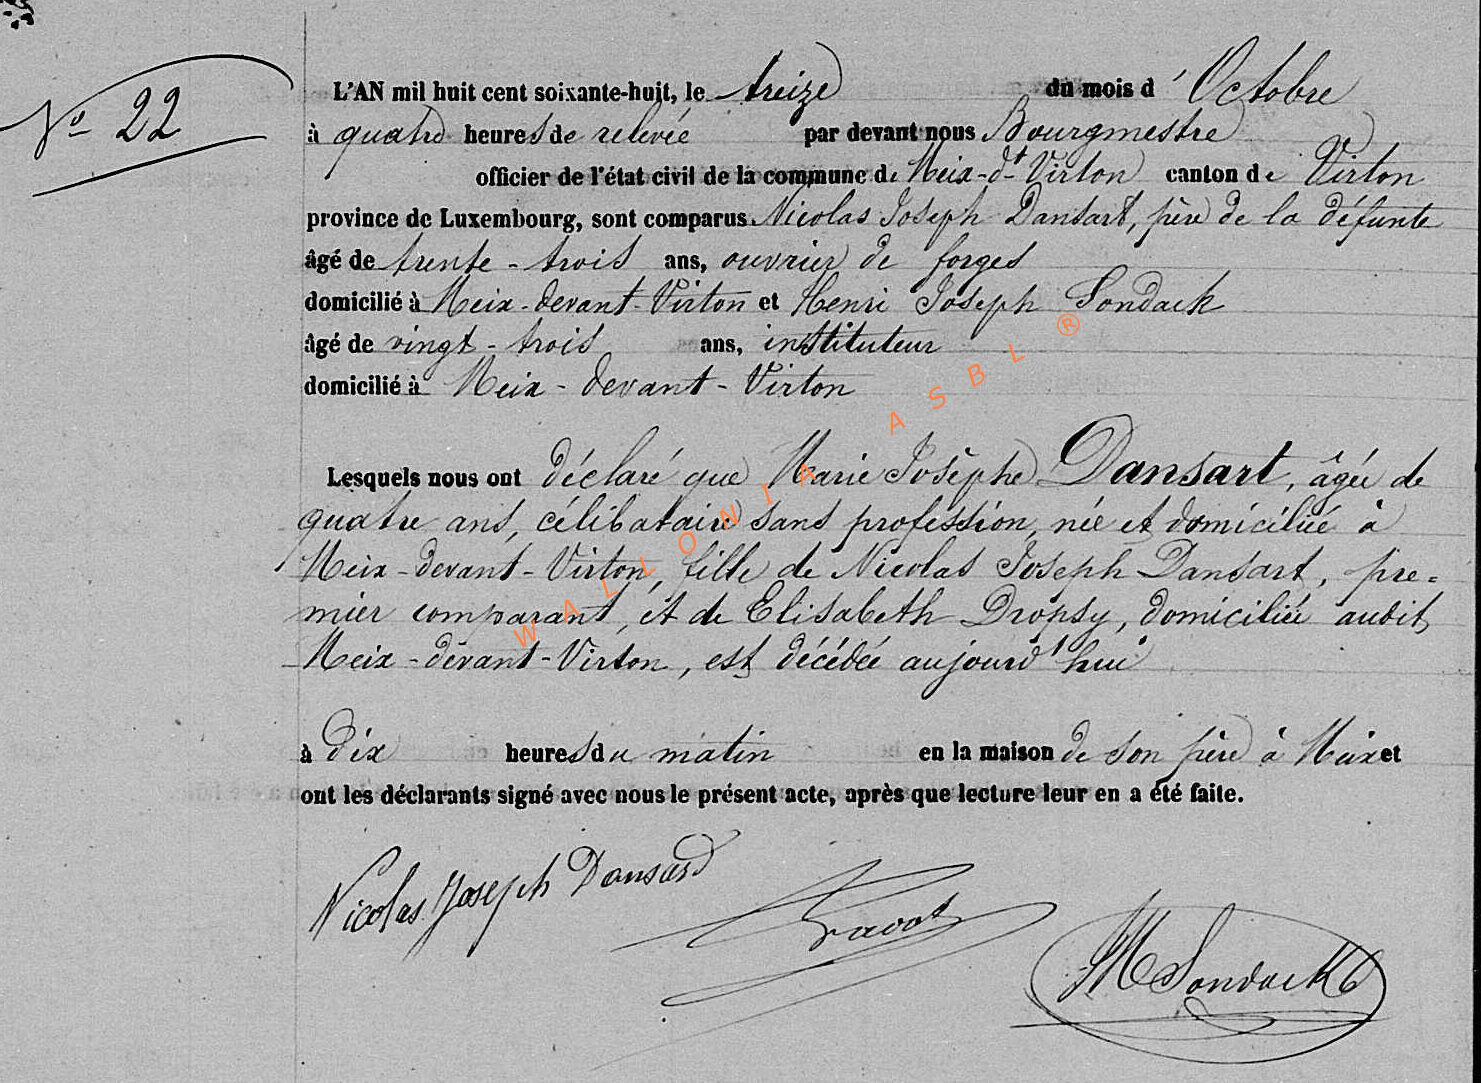 N° 22
L'AN mil huit cent soixante-huit, le treize du mois d'Octobre
à quatre heures de relevée par devant nous Bourgmestre
officier de l'état civil de la commune de Meix-dt-Virton canton de Virton
province de Luxembourg, sont comparus Nicolas Joseph Dansart, père de la défunte
âgé de trente-trois ans, ouvrier de forges
domicilié à Meix-devant-Virton et Henri Joseph Sondack
âgé de vingt-trois ans, instituteur
domicilié à Meix-devant-Virton
Lesquels nous ont déclaré que Marie Josèphe Dansart, âgée de
quatre ans, célibataire sans profession, née et domiciliée à
Meix-devant-Virton, fille de Nicolas Joseph Dansart, pre=
mier comparant, et de Elisabeth Dropsy, domiciliée audit
Meix-devant-Virton, est décédée aujourd'hui
à dix heures du matin en la maison de son père à Meix et
ont les déclarants signé avec nous le présent acte, après que lecture leur en a été faite.
Nicolas Joseph Dansard
Sondack
WALLONIA ASBL ®